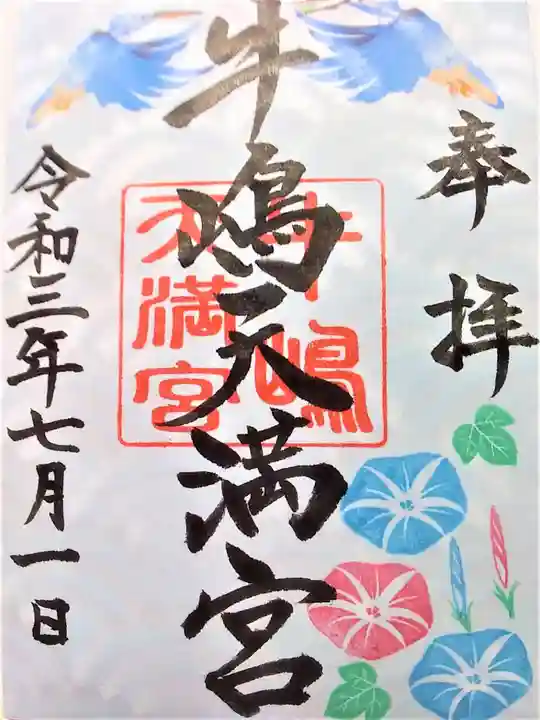 奉拝
牛嶋天満宮
牛嶋
天満宮
令和三年七月一日